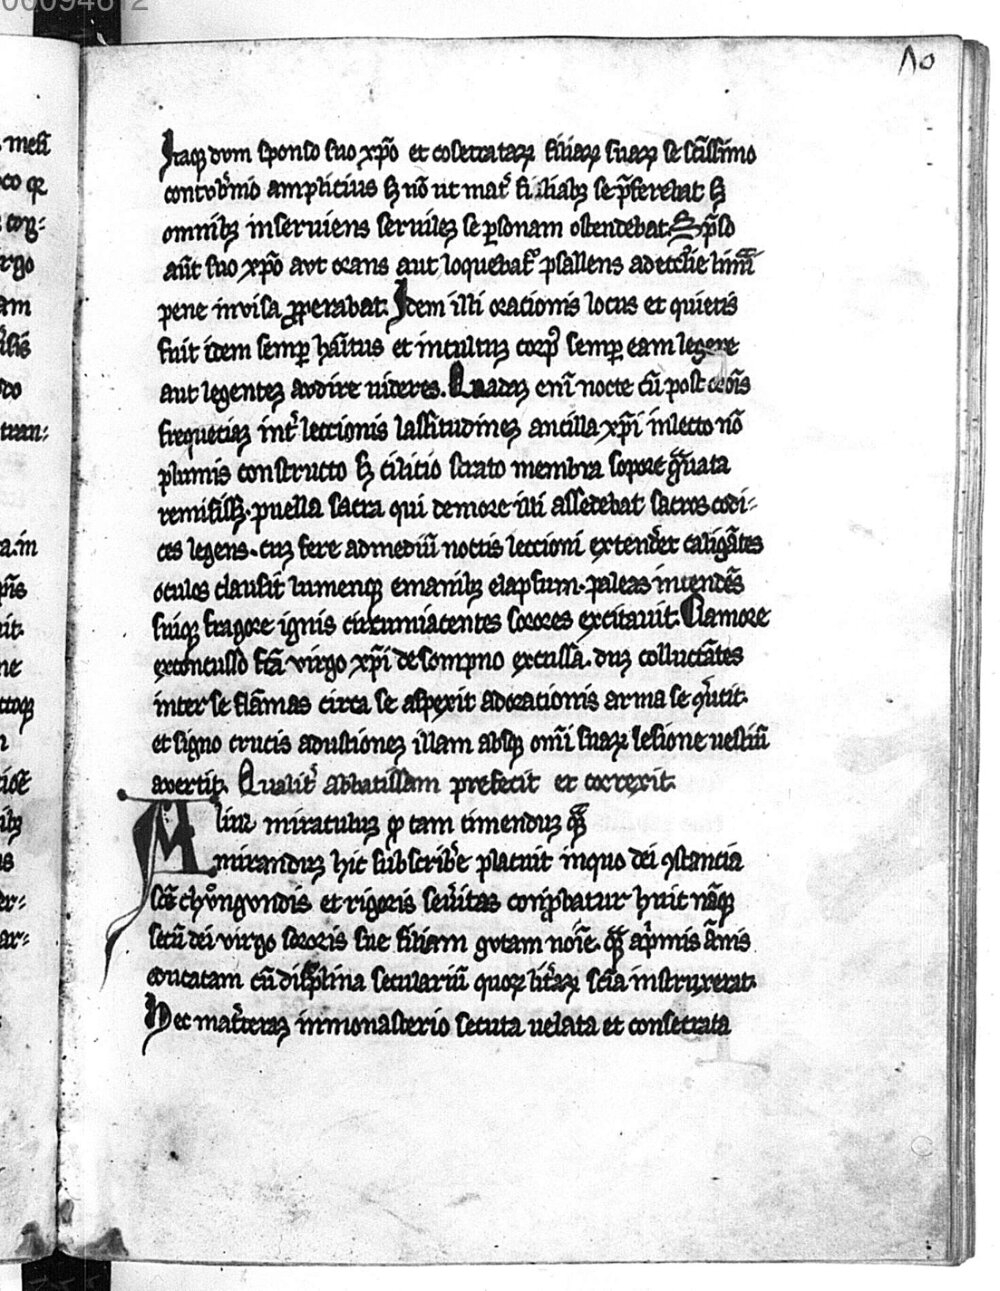 00094612
Λo
Itaq; dvm sponso suo xp̄o et cosecratarꝝ filiarꝝ suarꝝ se sc̄issimo
contvb̓nio amplicius sꝫ nō ut mat̓ filiabꝫ se p̄ferebat sꝫ
omnibꝫ inserviens servileꝫ se ꝑsonam ostendebat. Sp̄so
aūt suo xp̄o avt orans aut loquebat᷑ psallens ad eccl̓ie limīa
pene invisa ꝓperabat. Idem illi oracionis locus et quietis
fuit idem semꝑ habitus et incultus corꝑ semꝑ eam legere
aut legenteꝫ avdire videres. Quadaꝫ enī nocte cū post orōis
frequēciaꝫ int̓ leccionis lassitudineꝫ ancilla xp̄i in lecto nō
plumis constructo sꝫ cilicio strato membra sopore gͣvata
remisissꝫ. puella sacra qui de more illi assedebat sacros codi-
ces legens. cuꝫ fere ad mediū noctis leccioni extender̓ caligātes
oculos clausit lumenqꝫ e manibꝫ elapsum. paleas incendēs
suiqꝫ fragore ignis circumiacentes sorores excitavit. Clamore
exconcusso sc̄a virgo xp̄i de sompno excussa. duꝫ colluctātes
inter se flāmas circa se aspexit ad oracionis arma se ꝯv̓tit.
et signo crucis adustioneꝫ illam absqꝫ om̄i suarꝝ lesione vestiū
avertit. Qualit̓ abbatissam prefecit et correxit.
Aliut miraculuꝫ ꝙ tam timenduꝫ qͣꝫ
miranduꝫ hic subscrib̓e placuit in quo dei ꝯstancia
sc̄e chvͦngvndis et rigoris sev̓itas conꝓbatur huic nāqꝫ
secū dei virgo sororis sue filiam gvtam nōie. qͣꝫ a pͥmis ānis
educatam cū disciplina seculariū quoqꝫ lit̓arꝝ sciā instruxerat.
Hec mat̓teraꝫ in monasterio secuta velata et consecrata